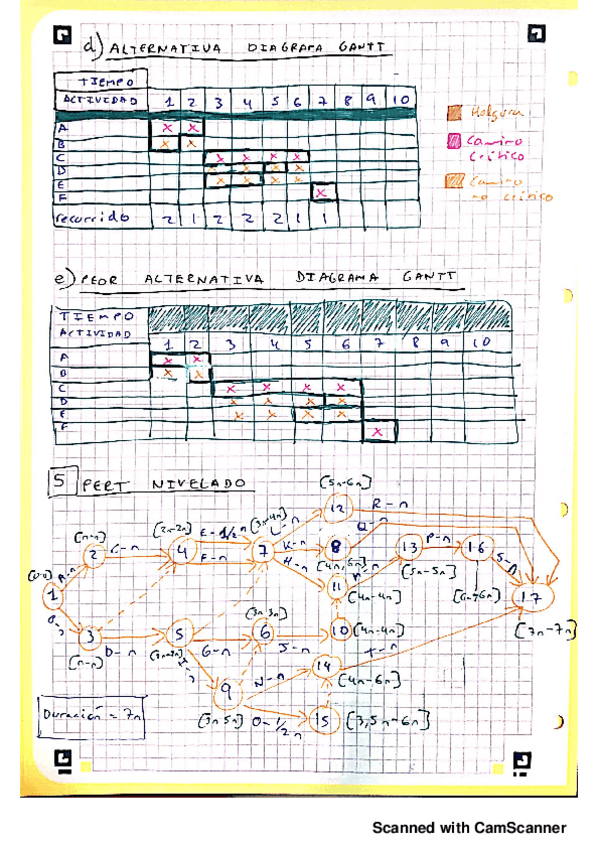 d) ALTERNATIVA DIAGRAMA GANTT
TIEMPO
ACTIVIDAD 1 2 3 4 5 6 7 8 9 10
A x x
B x x
C x x x x
D x x x x
E x x x x
F x
recorrido 2 1 2 2 2 1 1
Holgura
Camino crítico
Camino no crítico
e) PEOR ALTERNATIVA DIAGRAMA GANTT
TIEMPO
ACTIVIDAD 1 2 3 4 5 6 7 8 9 10
A x x
B x x
C x x x x
D x x x x
E x x x
F x
5 PERT NIVELADO
[5n-6n]
12 R-n
[n-n] [2n-2n] E-1/2n [3n-4n] L-n Q-n
2 C-n 4 F-n 7 K-n 8 13 P-n 16
[0-0] A-n H-n [4n,6n] [5n-5n] [6n-6n] S-n
1 11 17
[4n-4n] [7n-7n]
[3n-3n]
3 D-n 5 G-n 6 J-n 10 [4n-4n]
[n-n]
9 N-n 14 T-n
[4n-6n]
[3n-5n] O-1/2n 15 [3,5n-6n]
Duración = 7n
Scanned with CamScanner